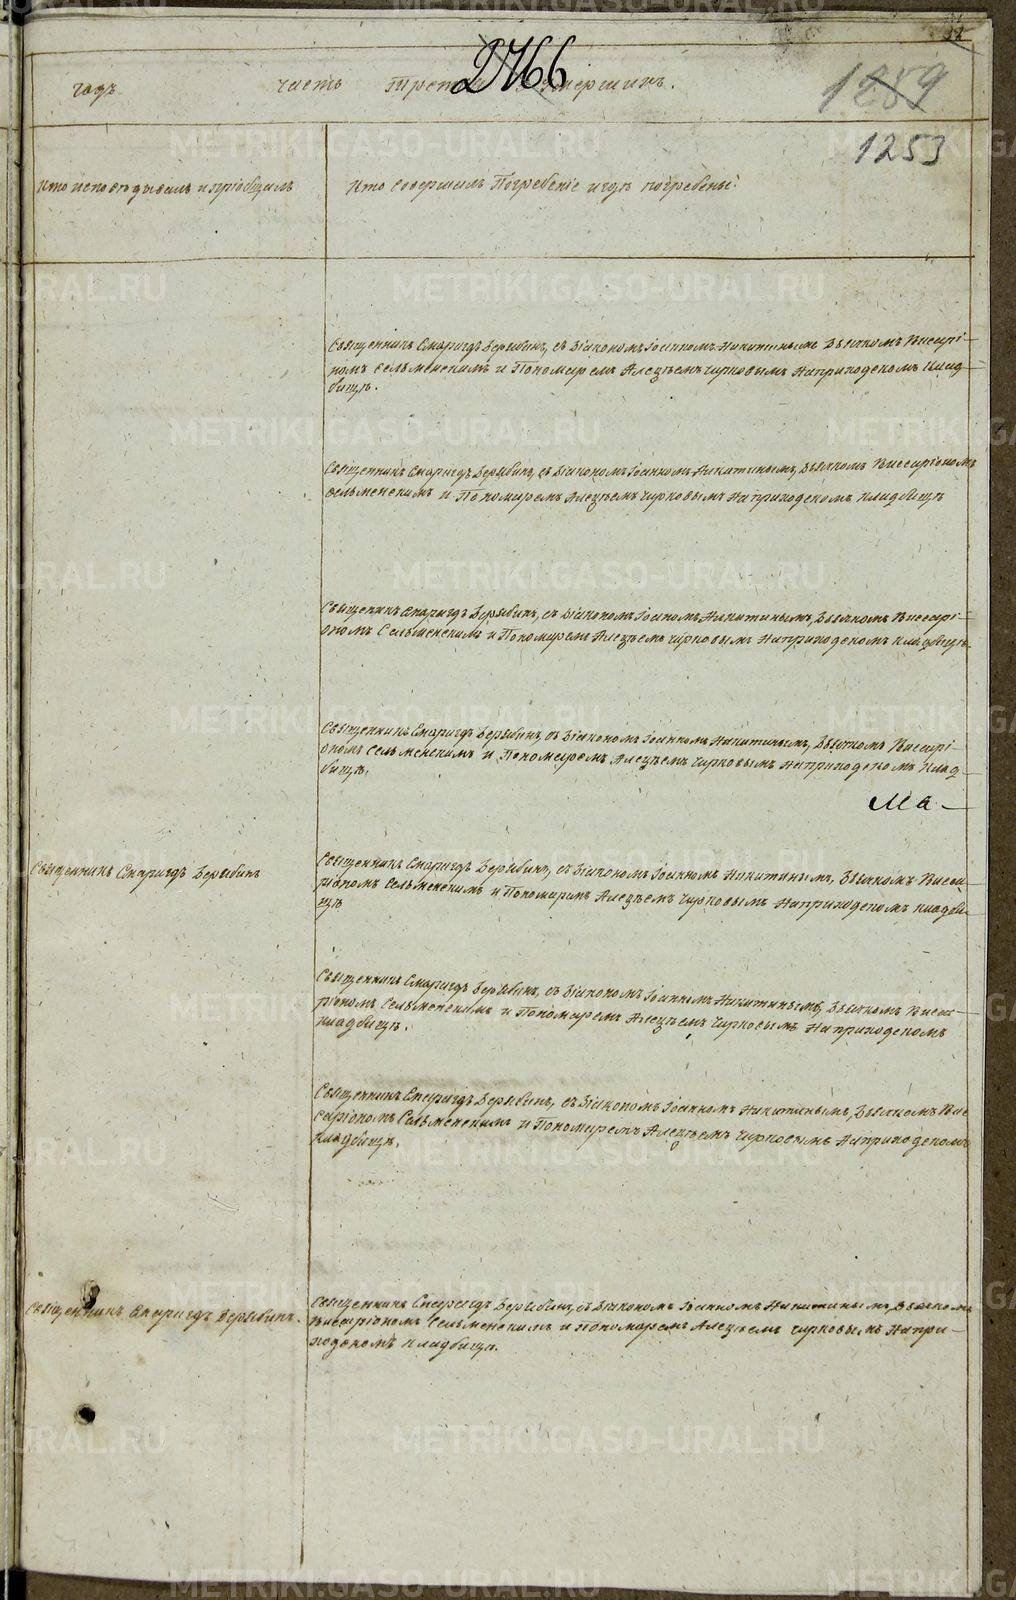 32
2466
годъ часть Третья умершихъ.
1259
1253
Кто исповѣдывалъ и пріобщалъ
Кто совершалъ Погребеніе и гдѣ погребены:
Священникъ Смарагдъ Дерябинъ, съ Діакономъ Іоанномъ Никитинымъ Дьячкомъ Висарі-
номъ Сельменскимъ и Пономаремъ Алеѯѣемъ Чирковымъ На приходскомъ Клад-
бищѣ.
Священникъ Смарагдъ Дерябинъ, съ Діакономъ Іоанномъ Никитинымъ, Дьячкомъ Виссаріономъ
Сельменскимъ и Пономаремъ Алеѯѣемъ Чирковымъ На приходскомъ кладбищѣ
Священникъ Смарагдъ Дерябинъ, съ Діакономъ Іоаномъ Никитинымъ, Дьячкомъ Виссарі-
ономъ Сельменскимъ и Пономаремъ Алеѯѣемъ Чирковымъ На приходскомъ кладбищѣ.
Священникъ Смарагдъ Дерябинъ, съ Діакономъ Іоанномъ Никитинымъ, Дьячкомъ Висарі-
ономъ Сельменскимъ и Пономаремъ Алеѯѣемъ Чирковымъ На приходскомъ Клад-
бищѣ,
Ма-
Священникъ Смарагдъ Дерябинъ
Священникъ Смарагдъ Дерябинъ, съ Діакономъ Іоанномъ Никитинымъ, Дьячкомъ Висса-
ріономъ Сельменскимъ и Пономаремъ Алеѯѣемъ Чирковымъ На приходскомъ кладби-
щѣ
Священникъ Смарагдъ Дерябинъ, съ Діакономъ Іоанномъ Никитинымъ, Дьячкомъ Висса-
ріономъ Сельменскимъ и Пономаремъ Алеѯѣемъ Чирковымъ На приходскомъ
кладбищѣ.
Священникъ Смарагдъ Дерябинъ, съ Діакономъ Іоанномъ Никитинымъ, Дьячкомъ Вис-
саріономъ Сельменскимъ и Пономаремъ Алеѯѣемъ Чирковымъ На приходскомъ
кладбищѣ,
Священникъ Смарагдъ Дерябинъ.
Священникъ Смарагдъ Дерябинъ, съ Діакономъ Іоанномъ Никитинымъ, Дьячкомъ
Висаріономъ Сельменскимъ и Пономаремъ Алеѯѣемъ Чирковымъ На при-
ходскомъ кладбищѣ.
METRIKI.GASO-URAL.RU